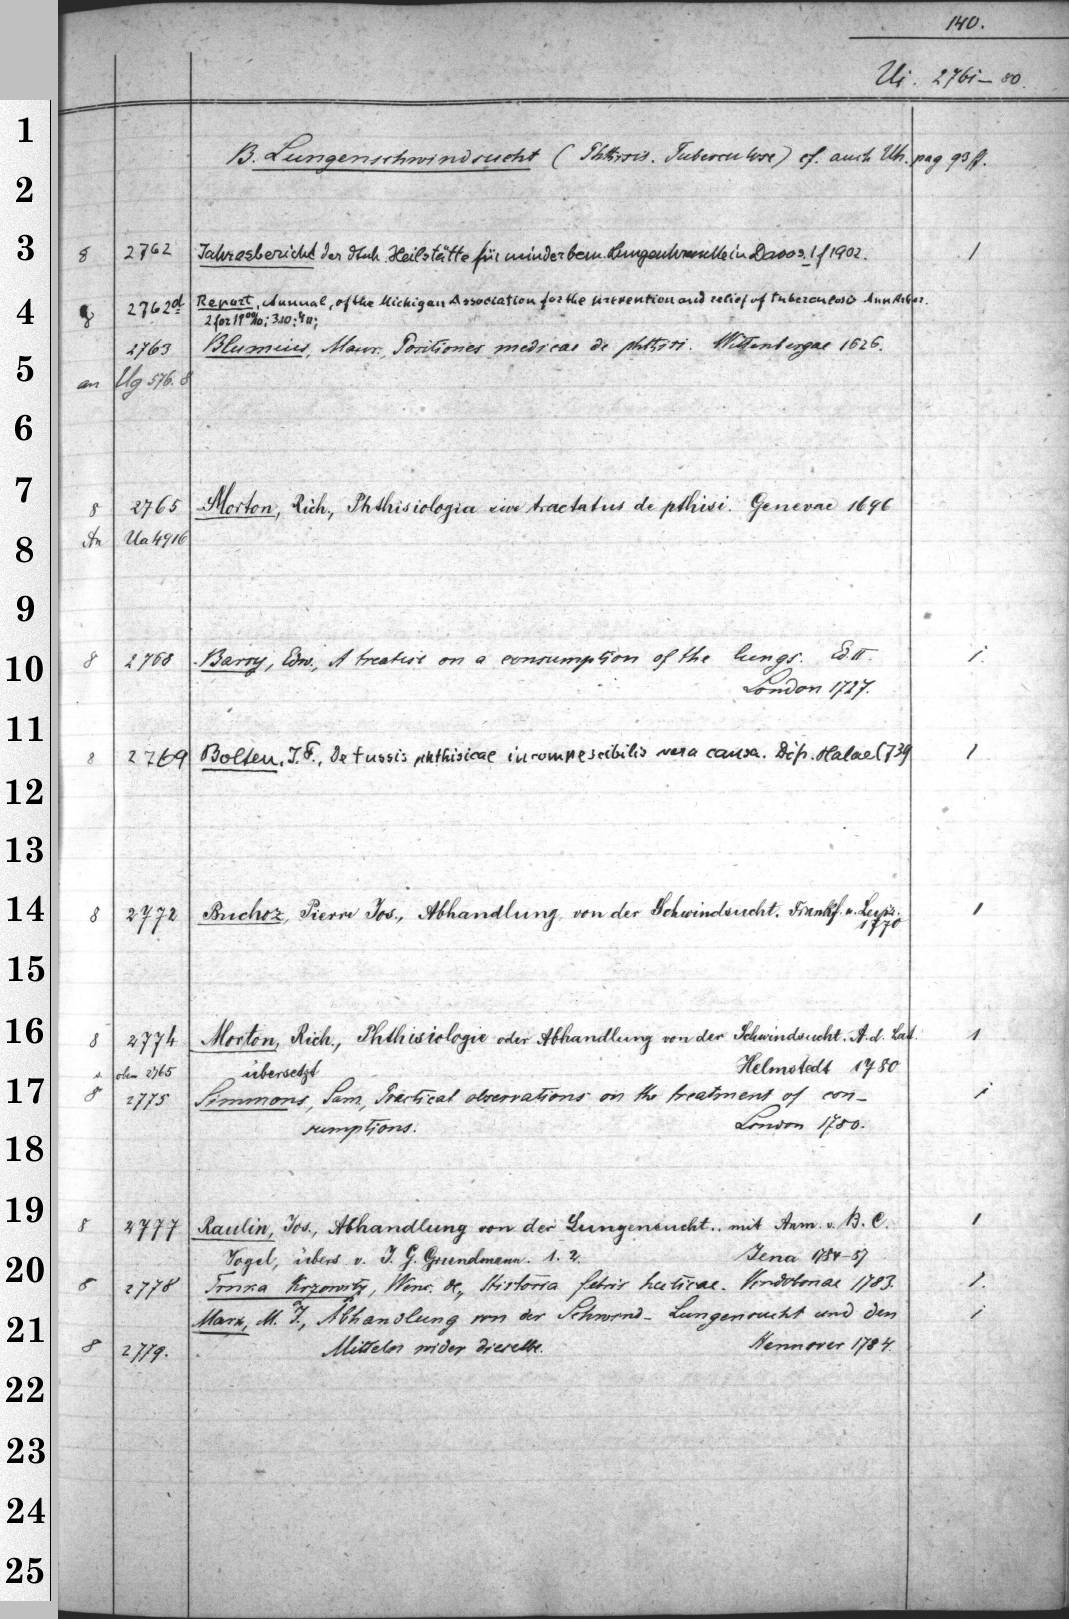 140.
Ui. 2761-80.
B. Lungenschwindsucht (Phthisis. Tuberculose) cf. auch Uh. pag 93 ff.
8 2762 Jahresbericht der dtsch. Heilstätte für minderbem. Lungenkranke in Davos. 1 f 1902. 1
8 2762d Report, Annual, of the Michigan Association for the prevention and relief of tuberculosis Ann Arbor.
2 for 1909/10; 3.10; 4.11;
2763 Blumeius, Maur., Positiones medicae de phthisi. Wittenbergae 1626.
an Ug 576. 8
8 2765 Morton, Rich., Phthisiologia sive tractatus de pthisi. Genevae 1696
An Ua 4916
8 2768 Barry, Edw., A treatise on a consumption of the lungs. Ed II. 1.
London 1727.
8 2769 Bolten, J. F., De tussis phthisicae incompescibilis vera causa. Diss. Halae 1739 1
8 2772 Buchoz, Pierre Jos., Abhandlung von der Schwindsucht. Frankf. u. Leipz. 1
1770
8 2774 Morton, Rich., Phthisiologie oder Abhandlung von der Schwindsucht. A. d. Lat. 1
s. oben 2765 übersetzt Helmstedt 1780
8 2775 Simmons, Sam, Practical observations on the treatment of con- 1
sumptions. London 1780.
8 2777 Raulin, Jos., Abhandlung von der Lungensucht.. mit Anm. v. B. C. 1
Vogel, übers v. J. G. Grundmann. 1. 2. Jena 1784-87
8 2778 Trnka Krzowitz, Wenc. de, Historia febris hecticae. Vindobonae 1783. 1.
Marx, M. J., Abhandlung von der Schwind- Lungensucht und den 1
8 2779. Mittelen wider dieselbe. Hannover 1784.
1
2
3
4
5
6
7
8
9
10
11
12
13
14
15
16
17
18
19
20
21
22
23
24
25